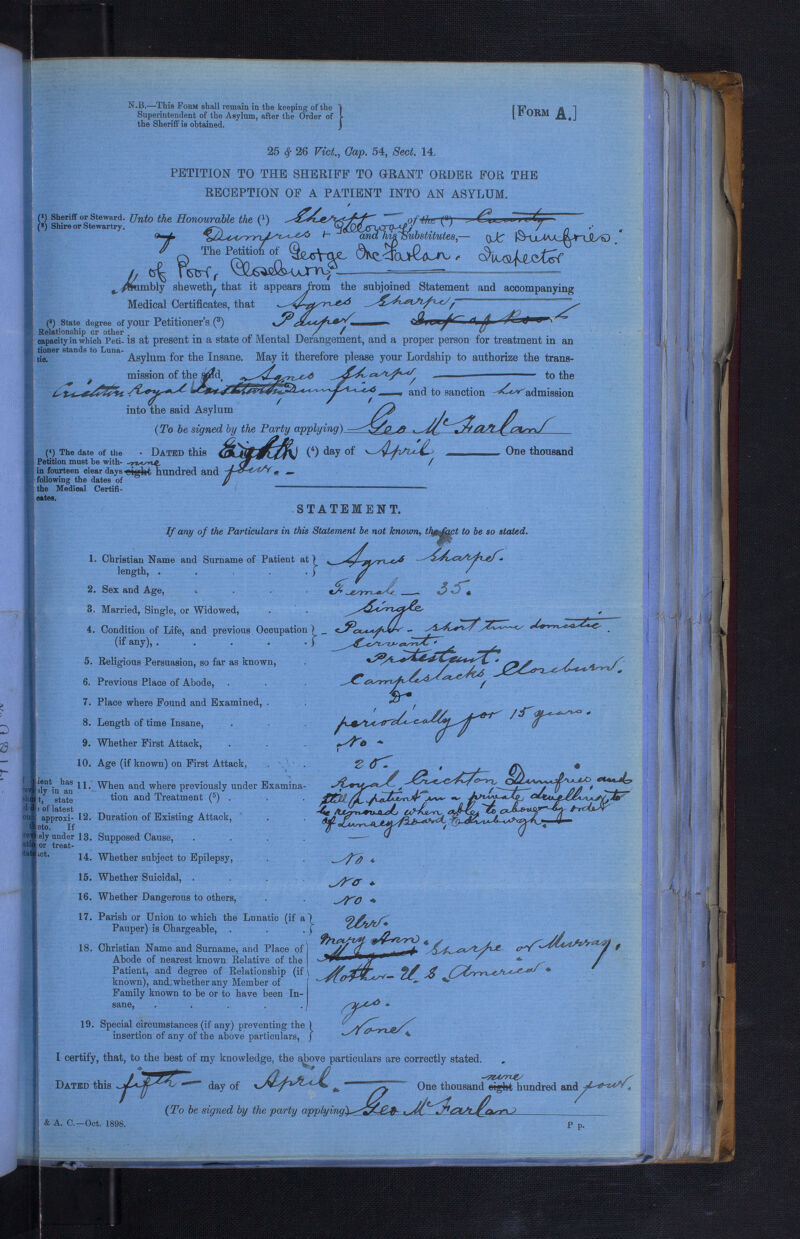 N.B.—This Form shall remain in the keeping of the
Superintendent of the Asylum, after the Order of
the Sheriff is obtained.
[Form A.]
25 & 26 Vict., Cap. 54, Sect. 14.
PETITION TO THE SHERIFF TO GRANT ORDER FOR THE
RECEPTION OF A PATIENT INTO AN ASYLUM.
(¹) Sheriff or Steward.
(²) Shire or Stewartry.
Unto the Honourable the (¹) Sheriff — of the (²) County
of Dumfries & Galloway and his Substitutes,— at Dumfries.
The Petition of George McFarlan, Inspector
of Poor, Closeburn,
Humbly sheweth, that it appears from the subjoined Statement and accompanying
Medical Certificates, that Agnes Sharpe,
(³) State degree of
Relationship or other
capacity in which Peti-
tioner stands to Luna-
tic.
your Petitioner's (³) Pauper, — Insp of Poor
is at present in a state of Mental Derangement, and a proper person for treatment in an
Asylum for the Insane. May it therefore please your Lordship to authorize the trans-
mission of the said Agnes Sharpe, — to the
Crichton Royal Institution Dumfries — and to sanction her admission
into the said Asylum
(To be signed by the Party applying) Geo McFarlan
(⁴) The date of the
Petition must be with-
in fourteen clear days
following the dates of
the Medical Certifi-
cates.
Dated this Eighth (⁴) day of April, — One thousand
nine
eight hundred and four. —
STATEMENT.
If any of the Particulars in this Statement be not known, the fact to be so stated.
1. Christian Name and Surname of Patient at
length, . Agnes Sharpe.
2. Sex and Age, Female — 35.
3. Married, Single, or Widowed, Single
4. Condition of Life, and previous Occupation
(if any), . Pauper - short time domestic
Servant.
5. Religious Persuasion, so far as known, Protestant.
6. Previous Place of Abode, . Campleslacks, Closeburn.
7. Place where Found and Examined, . Do
8. Length of time Insane, periodically for 15 years.
9. Whether First Attack, No -
10. Age (if known) on First Attack, 20.
11. When and where previously under Examina-
tion and Treatment (⁵) . Royal Crichton Dumfries and
still a patient in a private dwelling, to
12. Duration of Existing Attack,
be removed when able, to above by order
of Lunacy Board, Edinburgh. —
13. Supposed Cause,
14. Whether subject to Epilepsy, No.
15. Whether Suicidal, . No.
16. Whether Dangerous to others, No.
17. Parish or Union to which the Lunatic (if a
Pauper) is Chargeable, . Urr.
18. Christian Name and Surname, and Place of
Abode of nearest known Relative of the
Patient, and degree of Relationship (if
known), and whether any Member of
Family known to be or to have been In-
sane,
Mary Ann.
Margaret Sharpe or Murray.
Mother - U. S. America.
yes.
19. Special circumstances (if any) preventing the
insertion of any of the above particulars, None.
I certify, that, to the best of my knowledge, the above particulars are correctly stated.
nine
Dated this fifth — day of April. — One thousand eight hundred and four.
(To be signed by the party applying) Geo McFarlan
& A. C.—Oct. 1898.
P p.